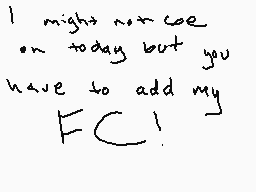 I might not coe
on today but you
have to add my
FC!